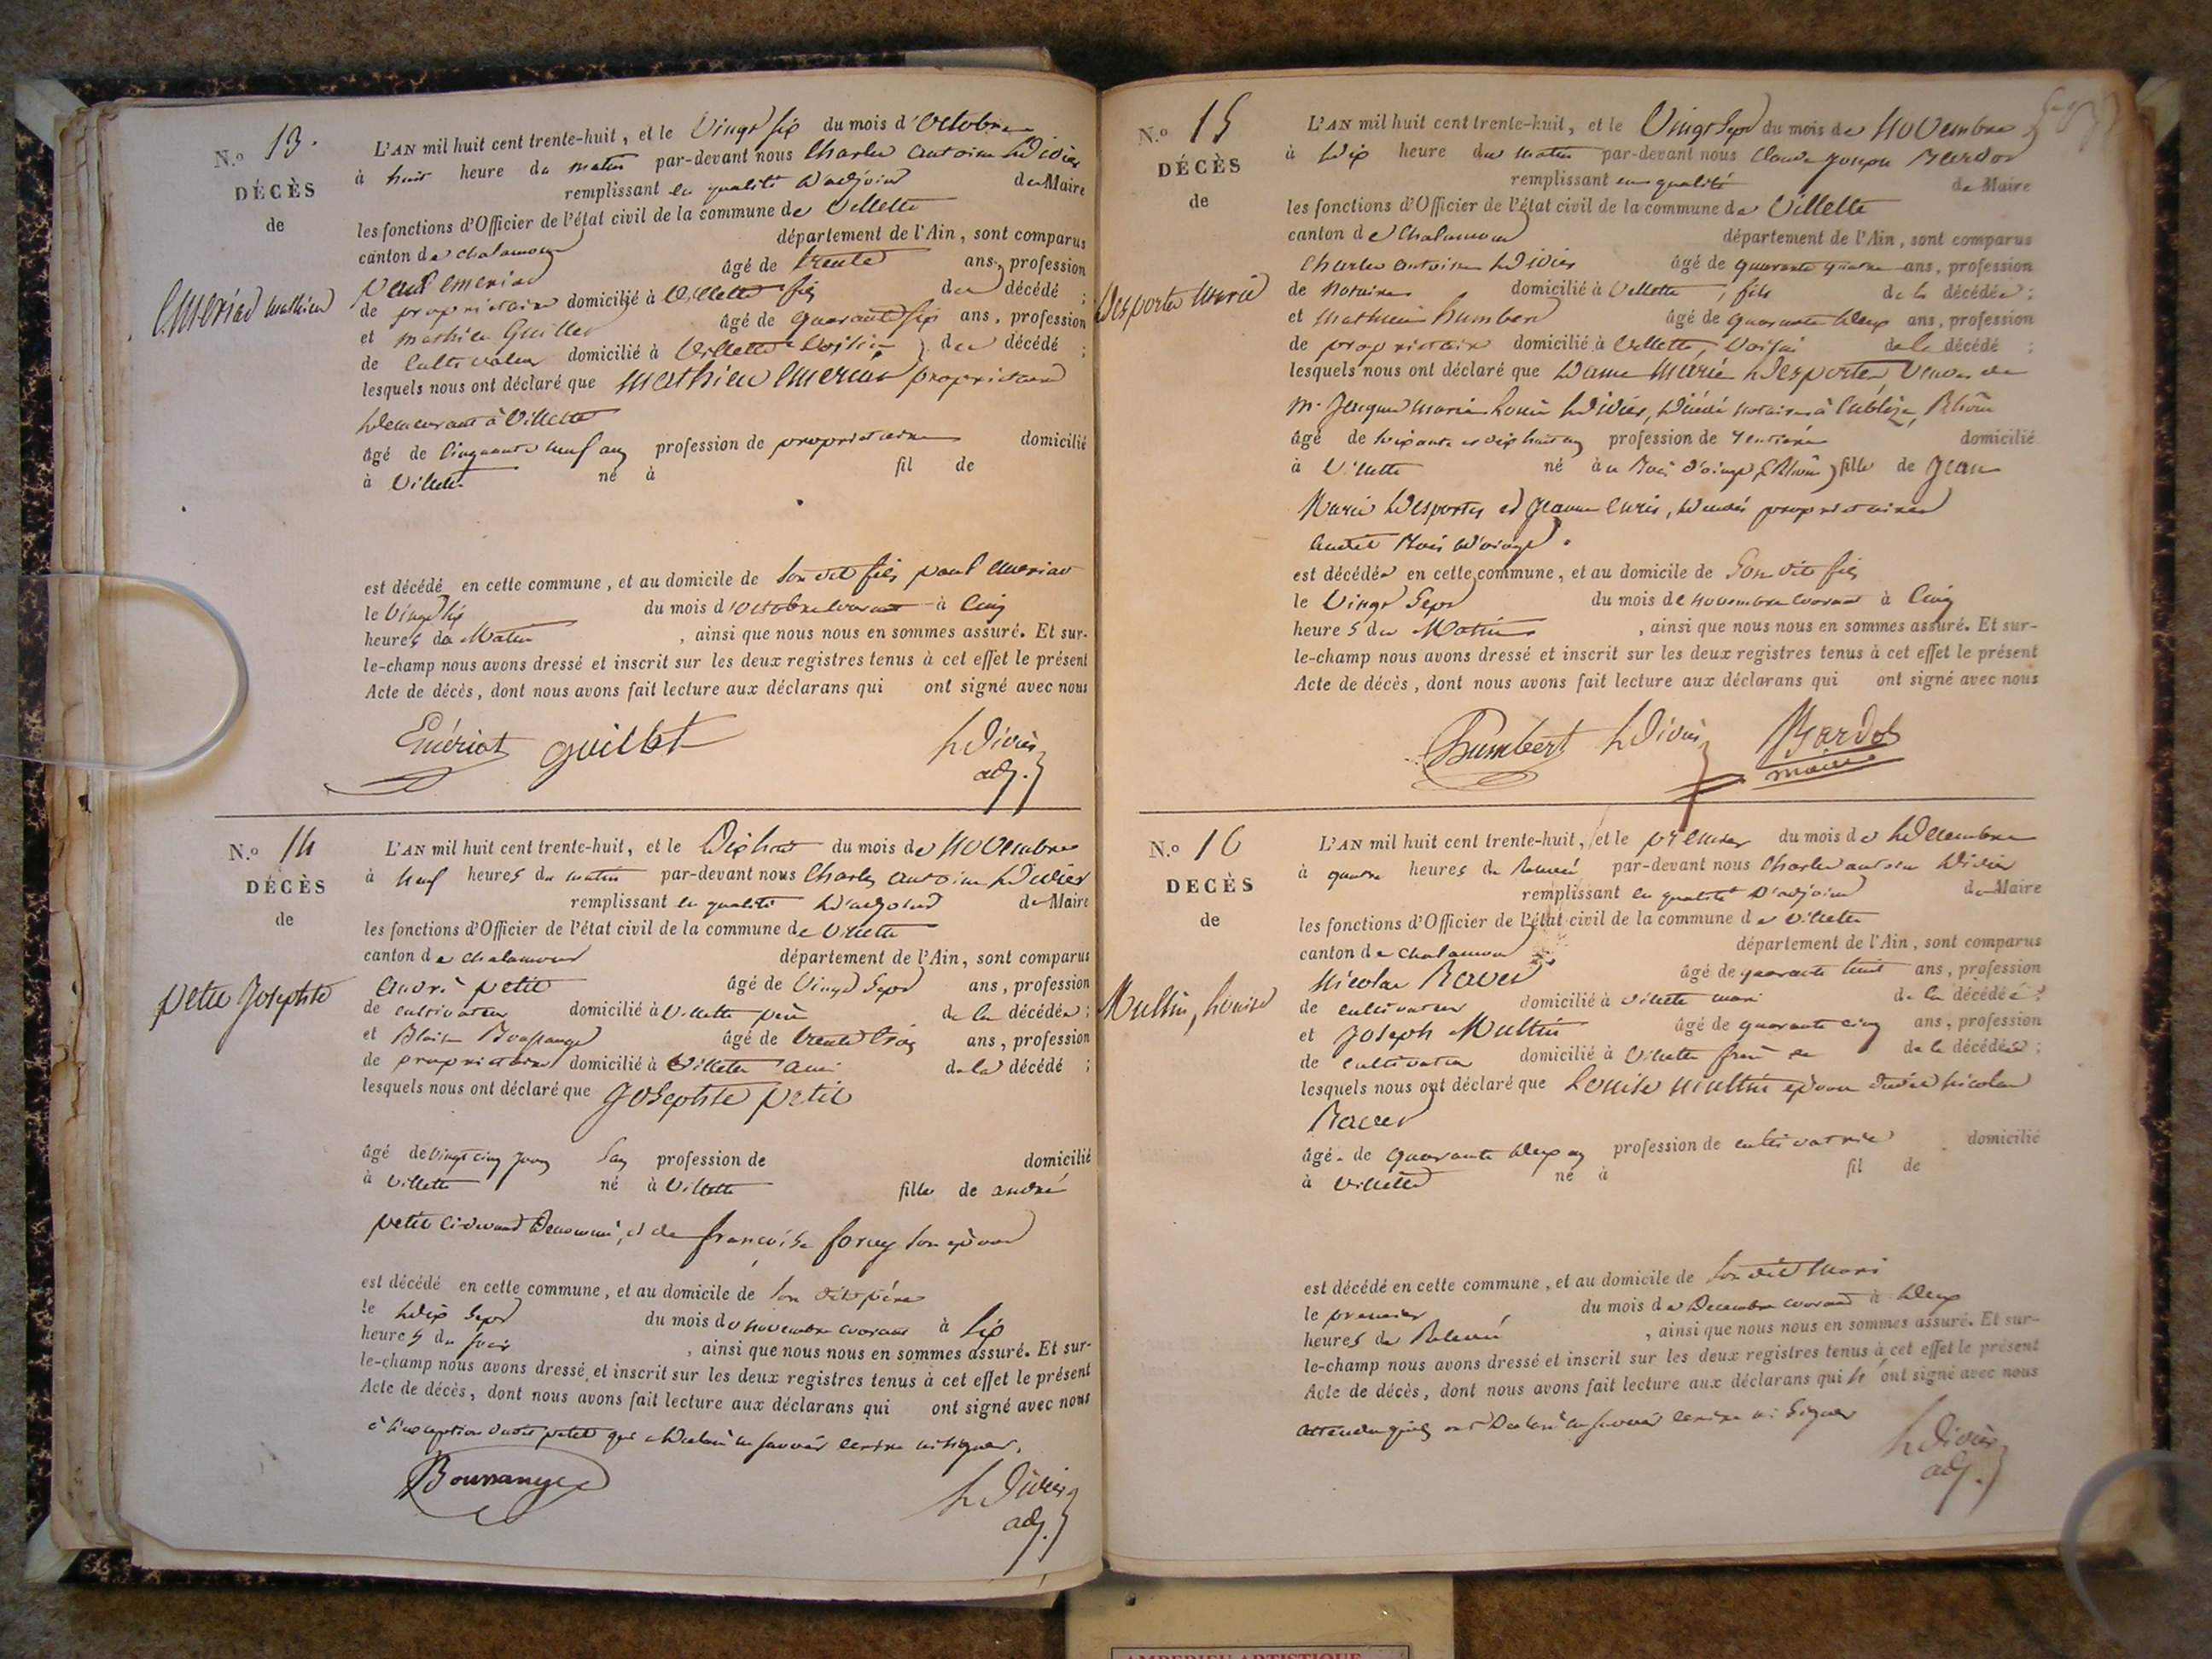 N.o 13.
DÉCÈS
de
Emeriat mathieu
L'AN mil huit cent trente-huit, et le Vingt six du mois d'Octobre
à huit heure du matin par-devant nous Charles antoine Didier
remplissant en qualité d'adjoint du Maire
les fonctions d'Officier de l'état civil de la commune de Villette
canton de chalamont département de l'Ain, sont comparus
paul emeriat âgé de trente ans, profession
de propriétaire domicilié à Villette fils du décédé ;
et mathieu Guillet âgé de quarante six ans, profession
de Cultivateur domicilié à Villette Voisin du décédé ;
lesquels nous ont déclaré que mathieu emeriat propriétaire
demeurant à Villette
âgé de Cinquante neuf ans profession de propriétaire domicilié
à Villette né à fil de
est décédé en cette commune, et au domicile de son dit fils paul emeriat
le Vingt six du mois d'octobre courant à Cinq
heures du Matin, ainsi que nous nous en sommes assuré. Et sur-
le-champ nous avons dressé et inscrit sur les deux registres tenus à cet effet le présent
Acte de décès, dont nous avons fait lecture aux déclarans qui ont signé avec nous
Emériat guillet Didier
adj.
N.o 14
DÉCÈS
de
petit Josephte
L'AN mil huit cent trente-huit, et le Dix huit du mois de Novembre
à Neuf heures du matin par-devant nous Charles antoine Didier
remplissant en qualité d'adjoint du Maire
les fonctions d'Officier de l'état civil de la commune de Villette
canton de chalamont département de l'Ain, sont comparus
André petit âgé de Vingt Sept ans, profession
de cultivateur domicilié à Villette père de la décédée ;
et Blaise Boussange âgé de trente trois ans, profession
de propriétaire domicilié à Villette ami de la décédé ;
lesquels nous ont déclaré que Josephte petit
âgé de Vingt cinq jours profession de domicilié
à Villette né à Villette fille de andré
petit ci devant Dénommé, et de françoise son épouse
est décédé en cette commune, et au domicile de son dit père
le dix Sept du mois de novembre courant à Six
heures du soir, ainsi que nous nous en sommes assuré. Et sur-
le-champ nous avons dressé et inscrit sur les deux registres tenus à cet effet le présent
Acte de décès, dont nous avons fait lecture aux déclarans qui ont signé avec nous
à l'exception dudit petit qui a Déclaré ne savoir écrire ni signer.
Boussange Didier
adj.
N.o 15
DÉCÈS
de
Desportes Marie
L'AN mil huit cent trente-huit, et le Vingt Sept du mois de Novembre
à Dix heure du matin par-devant nous Claude Joseph Bardot
remplissant en qualité de Maire
les fonctions d'Officier de l'état civil de la commune de Villette
canton de Chalamont département de l'Ain, sont comparus
Charles antoine Didier âgé de quarante quatre ans, profession
de Notaire domicilié à Villette, fils de la décédée ;
et Mathieu humbert âgé de quarante Deux ans, profession
de propriétaire domicilié à Villette, Voisin de la décédé ;
lesquels nous ont déclaré que Dame Marie Desportes, Veuve de
M. Jacques marie Louis Didier, Décédé notaire à Cublize, Rhône
âgé de soixante et dix huit ans profession de rentière domicilié
à Villette né à u Bois d'oingt, (Rhône) fille de Jean
Marie Desportes et Jeanne Curis, Décédés propriétaires
audit Bois d'oingt.
est décédée en cette commune, et au domicile de Son dit fils
le Vingt Sept du mois de novembre courant à Cinq
heures du Matin, ainsi que nous nous en sommes assuré. Et sur-
le-champ nous avons dressé et inscrit sur les deux registres tenus à cet effet le présent
Acte de décès, dont nous avons fait lecture aux déclarans qui ont signé avec nous
humbert Didier Bardot
maire
N.o 16
DECÈS
de
Multin, Louise
L'AN mil huit cent trente-huit, et le premier du mois de Décembre
à quatre heures du Relevé par-devant nous Charles antoine Didier
remplissant en qualité d'adjoint du Maire
les fonctions d'Officier de l'état civil de la commune de Villette
canton de chalamont département de l'Ain, sont comparus
Nicolas Ravet âgé de quarante huit ans, profession
de cultivateur domicilié à Villette mari de la décédée ;
et Joseph Multin âgé de quarante cinq ans, profession
de cultivateur domicilié à Villette frère de de la décédée ;
lesquels nous ont déclaré que Louise Multin épouse dudit Nicolas
Ravet
âgé de quarante deux ans profession de cultivatrice domicilié
à Villette né à fil de
est décédé en cette commune, et au domicile de son dit Mari
le premier du mois de Décembre courant à Deux
heures de Relevé, ainsi que nous nous en sommes assuré. Et sur-
le-champ nous avons dressé et inscrit sur les deux registres tenus à cet effet le présent
Acte de décès, dont nous avons fait lecture aux déclarans qui n' ont signé avec nous
attendu qu'ils ont Déclaré ne savoir écrire ni Signer
Didier
adj.
AMBERIEU ARTISTIQUE